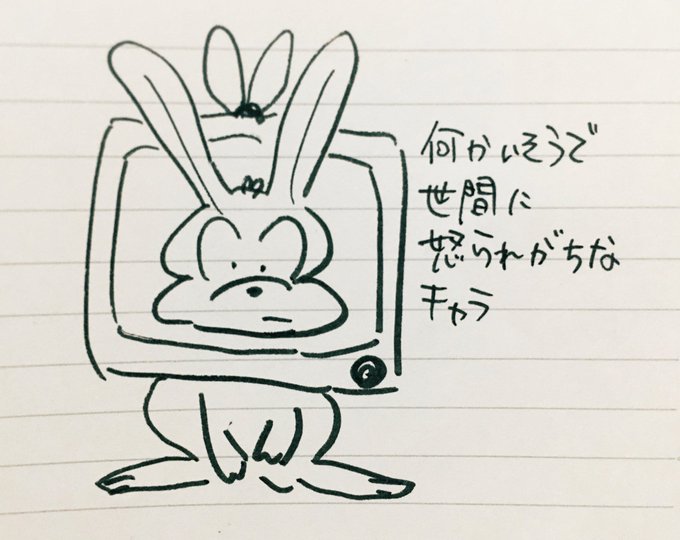 何かいそうで
世間に
怒られがちな
キャラ